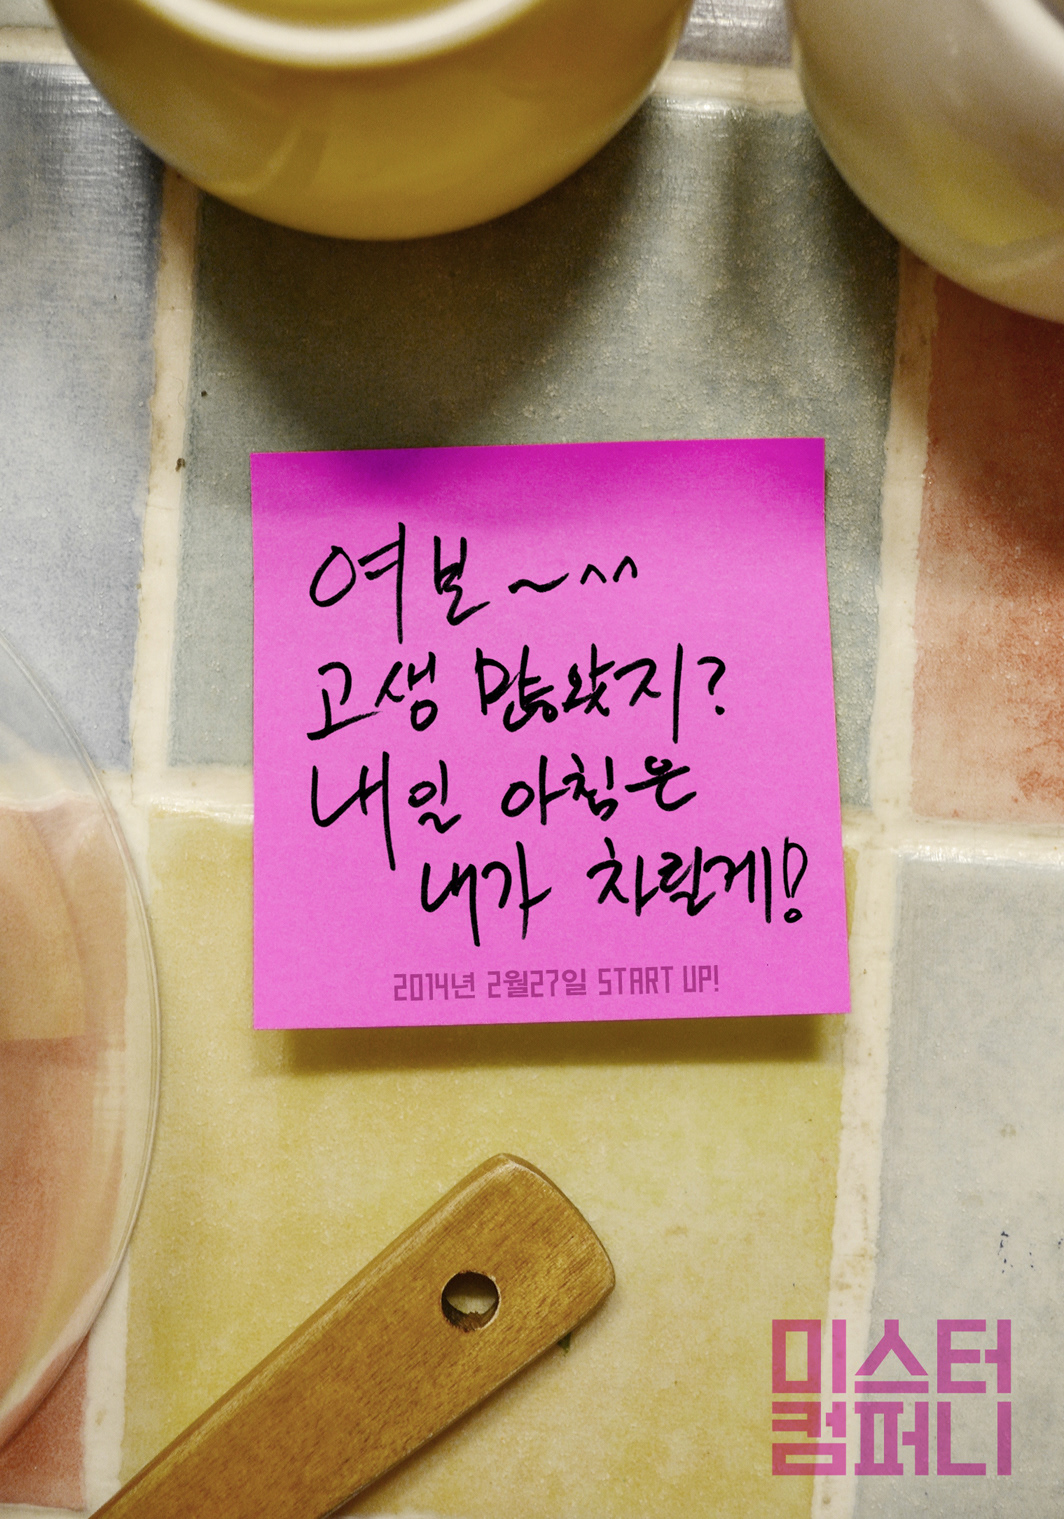 여보~^^
고생 많았지?
내일 아침은
내가 차릴게!
2014년 2월27일 START UP!
미스터
컴퍼니